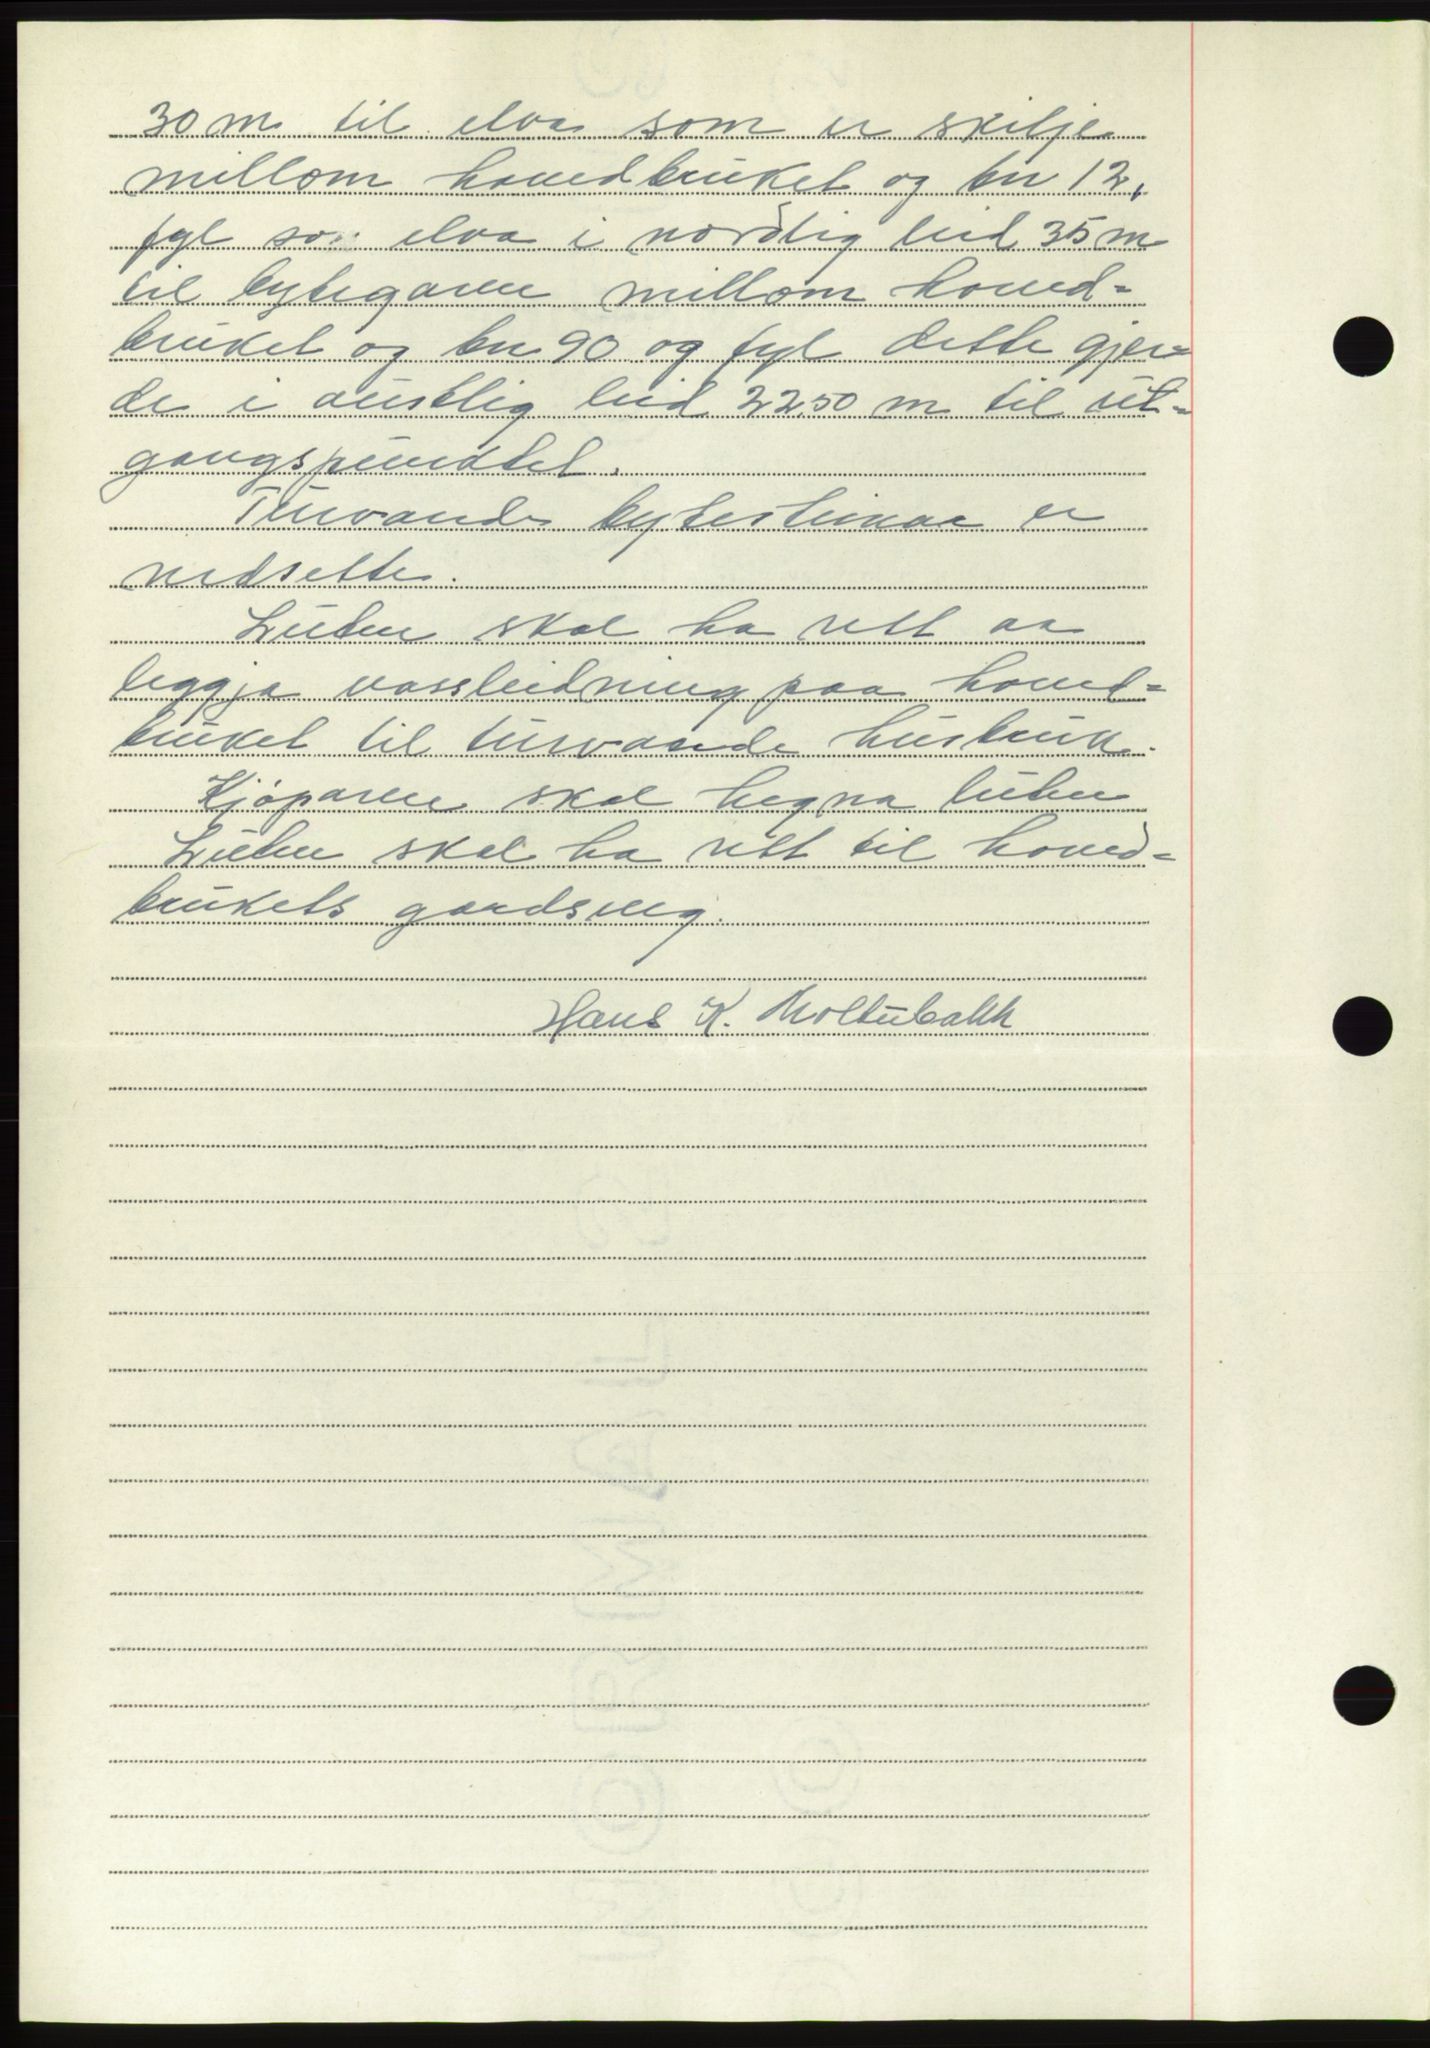 30 m til elva som er skilje
millom hovedbruket og bn 12,
fyl so elva i nordlig leid 35 m
til bytegaren millom hoved=
bruket og bn 90 og fyl dette gjer=
de i austlig leid 22.50 m til ut=
gangspunktet.
Turvande bytesteinar er
nedsette.
Luten skal ha rett aa
leggja vassleidning paa hoved=
bruket til turvande husbruk.
Kjøparen skal hegna luten
Luten skal ha rett til hoved=
brukets gardsveg.
Hans K. Moltubakk